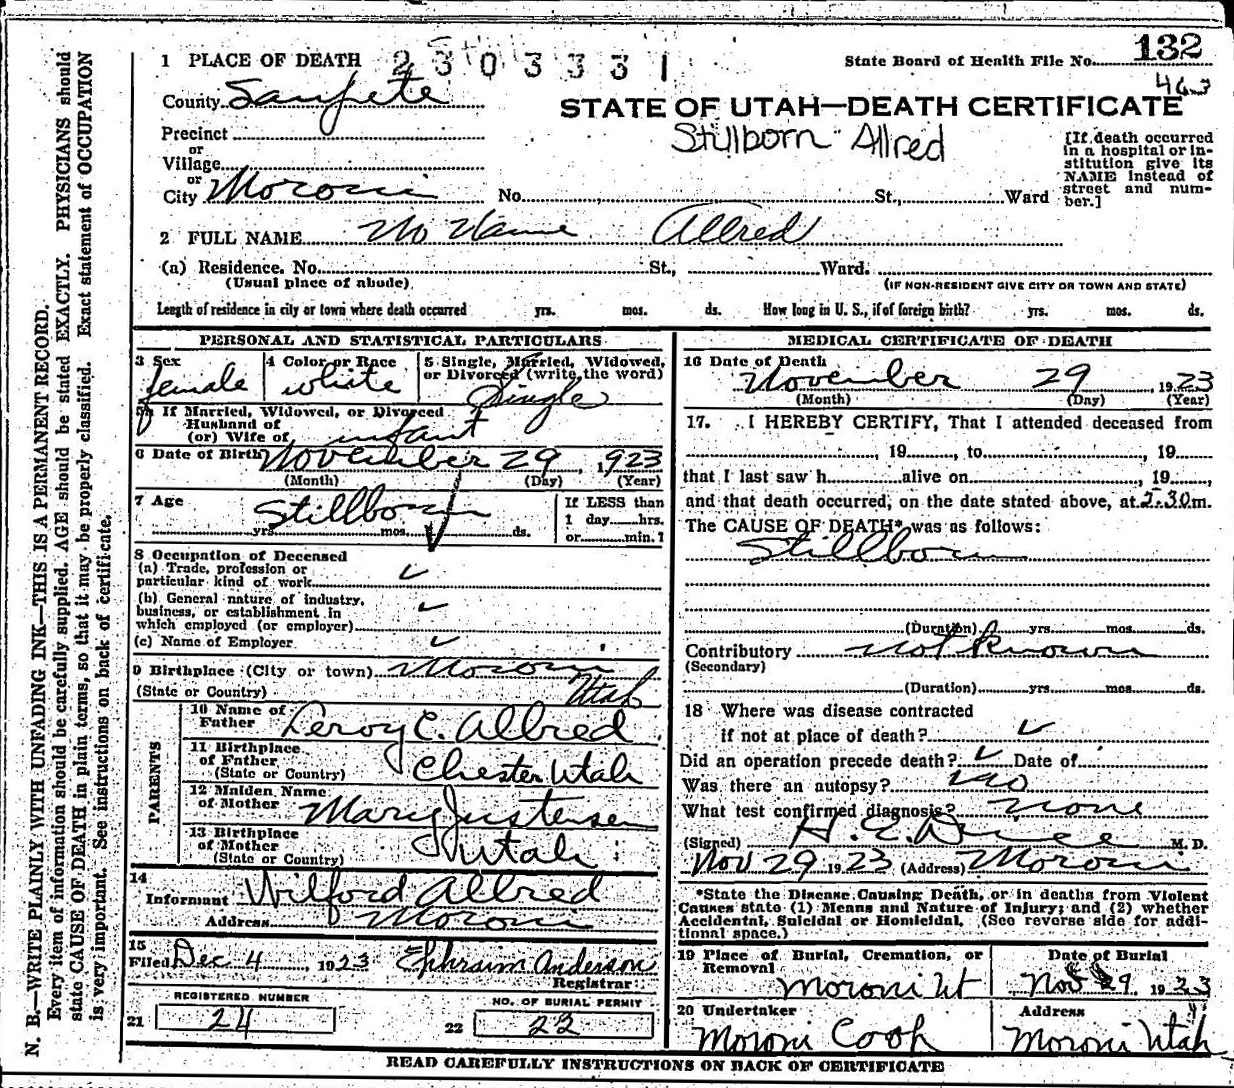 N. B.—WRITE PLAINLY WITH UNFADING INK—THIS IS A PERMANENT RECORD.
Every item of information should be carefully supplied. AGE should be stated EXACTLY. PHYSICIANS should
state CAUSE OF DEATH in plain terms, so that it may be properly classified. Exact statement of OCCUPATION
is very important. See instructions on back of certificate.
1 PLACE OF DEATH 2303331
State Board of Health File No. 132
463
County Sanpete
STATE OF UTAH—DEATH CERTIFICATE
Stillborn Allred
Precinct
or
Village
or
City Moroni No. St., Ward
[If death occurred
in a hospital or in-
stitution give its
NAME instead of
street and num-
ber.]
2 FULL NAME No Name Allred
(a) Residence. No. St., Ward.
(Usual place of abode) (IF NON-RESIDENT GIVE CITY OR TOWN AND STATE)
Length of residence in city or town where death occurred yrs. mos. ds. How long in U. S., if of foreign birth? yrs. mos. ds.
PERSONAL AND STATISTICAL PARTICULARS
3 Sex female
4 Color or Race white
5 Single, Married, Widowed,
or Divorced (write the word)
Single
5a If Married, Widowed, or Divorced
Husband of
(or) Wife of infant
6 Date of Birth November 29, 1923
(Month) (Day) (Year)
7 Age Stillborn
yrs. mos. ds.
If LESS than
1 day hrs.
or min.?
8 Occupation of Deceased
(a) Trade, profession or
particular kind of work ✓
(b) General nature of industry,
business, or establishment in
which employed (or employer) ✓
(c) Name of Employer ✓
9 Birthplace (City or town) Moroni
(State or Country) Utah
PARENTS
10 Name of
Father Leroy C. Allred
11 Birthplace
of Father
(State or Country) Chester Utah
12 Maiden Name
of Mother Mary Justensen
13 Birthplace
of Mother
(State or Country) Utah
14
Informant Wilford Allred
Address Moroni
15
Filed Dec 4, 1923 Ephraim Anderson
Registrar
REGISTERED NUMBER
21 24
NO. OF BURIAL PERMIT
22 22
MEDICAL CERTIFICATE OF DEATH
16 Date of Death
November 29, 1923
(Month) (Day) (Year)
17. I HEREBY CERTIFY, That I attended deceased from
, 19, to, 19
that I last saw h alive on, 19,
and that death occurred, on the date stated above, at 5:30 m.
The CAUSE OF DEATH* was as follows:
Stillborn
(Duration) yrs. mos. ds.
Contributory not known
(Secondary)
(Duration) yrs. mos. ds.
18 Where was disease contracted
if not at place of death? ✓
Did an operation precede death? ✓ Date of
Was there an autopsy? no
What test confirmed diagnosis? none
(Signed) H. E. M. D.
Nov 29 1923 (Address) Moroni
*State the Disease Causing Death, or in deaths from Violent
Causes state (1) Means and Nature of Injury; and (2) whether
Accidental, Suicidal or Homicidal. (See reverse side for addi-
tional space.)
19 Place of Burial, Cremation, or
Removal
Moroni Ut
Date of Burial
Nov 29 1923
20 Undertaker
Moroni Coop
Address
Moroni Utah
READ CAREFULLY INSTRUCTIONS ON BACK OF CERTIFICATE